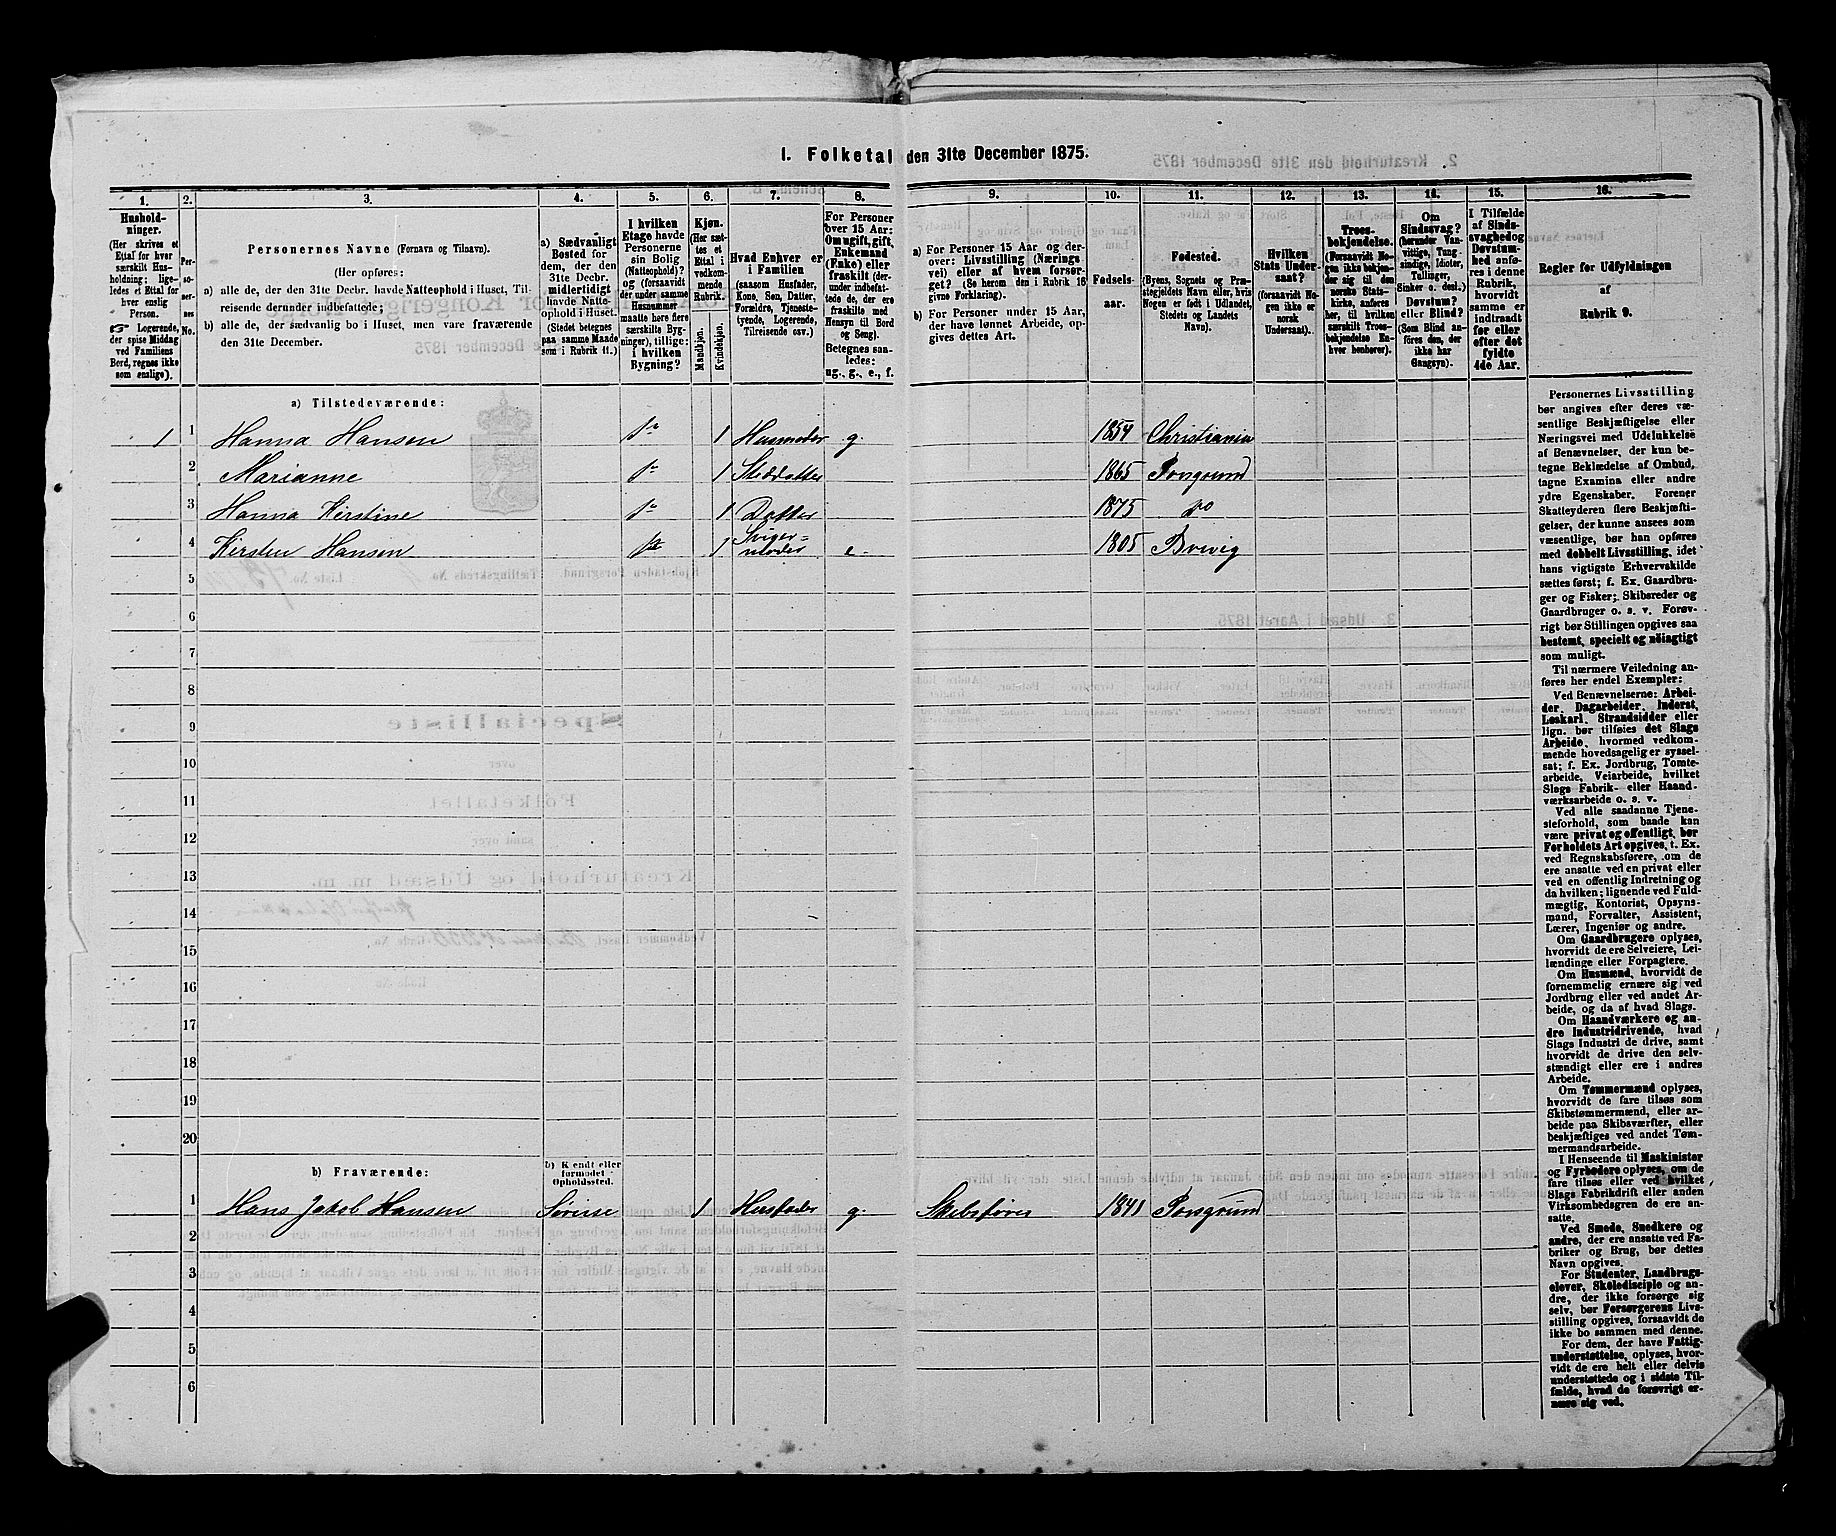 1. Folketal den 31te December 1875.
1.
2.
3.
4.
5.
6.
7.
8.
9.
10.
11.
12.
13.
14.
15.
16.
Hushold-
ninger.
(Her skrives et
Ettal for hver
særskilt Hus-
holdning; lige-
ledes et Ettal for
hver enslig
Person.
☞ Logerende,
der spise Middag
ved Familiens
Bord, regnes ikke
som enslige).
Per-
so-
ner-
nes
No.
Personernes Navne (Fornavn og Tilnavn).
(Her opføres:
a) alle de, der den 31te Decbr. havde Natteophold i Huset, Til-
reisende derunder indbefattede;
b) alle de, der sædvanlig bo i Huset, men vare fraværende
den 31te December.
a) Sædvanligt
Bosted for
dem, der den
31te Decbr.
midlertidigt
havde Natte-
ophold i Huset.
(Stedet betegnes
paa samme Maade
som i Rubrik 11.)
I hvilken
Etage havde
Personerne
sin Bolig
(Natteophold)?
og (forsaavidt
der under samme
Husnummer
maatte høre flere
særskilte Byg-
ninger), tillige:
i hvilken
Bygning?
Kjøn.
(Her sæt-
tes et
Ettal i
vedkom-
mende
Rubrik.
Mandkjøn.
Kvindekjøn.
Hvad Enhver er
i Familien
(saasom Husfader,
Kone, Søn, Datter,
Forældre, Tjeneste-
tyende, Logerende,
Tilreisende osv.)
For Personer
over 15 Aar:
Om ugift, gift,
Enkemand
(Enke) eller
fraskilt (der-
under indbefat-
tede de, der ere
fraskilte med
Hensyn til Bord
og Seng).
Betegnes saa-
ledes:
ug., g., e., f.
a) For Personer 15 Aar og der-
over: Livsstilling (Nærings-
vei) eller af hvem forsør-
get? (Se herom den i Rubrik 16
givne Forklaring).
b) For Personer under 15 Aar,
der have lønnet Arbeide, op-
gives dettes Art.
Fødsels-
aar.
Fødested.
(Byens, Sognets og Præ-
stegjeldets Navn eller, hvis
Nogen er født i Udlandet,
Stedets og Landets
Navn).
Hvilken
Stats Under-
saat?
(forsaavidt No-
gen ikke er
norsk
Undersaat).
Troes-
bekjendelse.
(Forsaavidt No-
gen ikke bekjen-
der sig til den
norske Stats-
kirke, anføres
her, til hvilken
særskilt Troes-
bekjendelse En-
hver henhører).
Om
Sindssvag?
(herunder Van-
vittige, Tung-
sindige, Idioter,
Tullinger,
Sinker o. desl.)
Døvstum?
eller Blind?
(Som Blind an-
føres den, der
ikke har
Gangsyn).
I Tilfælde
af Sinds-
svaghed og
Døvstum-
hed anfø-
res i denne
Rubrik,
hvorvidt
samme er
indtraadt
før eller
efter det
fyldte
4de Aar.
Regler for Udfyldningen
af
Rubrik 9.
a) Tilstedeværende:
1 1 Hanna Hansen 1 Husmoder g. 1854 Christiania
2 Marianne 1 Steddatter 1865 Porsgrund
3 Hanna Kirstine 1 Datter 1875 do
4 Kirsten Hansen 1 Sviger-
moder e. 1805 Brevig
5
6
7
8
9
10
11
12
13
14
15
16
17
18
19
20
b) Fraværende:
b) Kendt eller
formodet
Opholdssted.
1 Hans Jakob Hansen 1 Husfader g. Skibsfører 1841 Porsgrund
2
3
4
5
6
Personernes Livsstilling
bør angives efter deres væ-
sentlige Beskjæftigelse eller
Næringsvei med Udelukkelse
af Benævnelser, der kun be-
tegne Beklædelse af Ombud,
tagne Examina eller andre
ydre Egenskaber. Forener
Skatteyderen flere Beskjæfti-
gelser, der kunne ansees som
væsentlige, bør han opføres
med dobbelt Livsstilling, idet
hans vigtigste Erhvervskilde
sættes først; f. Ex. Gaardbru-
ger og Fisker; Skibsreder og
Gaardbruger o. s. v. Forøv-
rigt bør Stillingen opgives saa
bestemt, specielt og nöiagtigt
som muligt.
Til nærmere Veiledning an-
føres her endel Exempler:
Ved Benævnelserne: Arbei-
der, Dagarbeider, Inderst,
Løskarl, Strandsidder eller
lign. bør tilføies det Slags
Arbeide, hvormed vedkom-
mende hovedsagelig er syssel-
sat; f. Ex. Jordbrug, Tomte-
arbeide, Veiarbeide, hvilket
Slags Fabrik- eller Haand-
værksarbeide o. s. v.
Ved alle saadanne Tjene-
steforhold, som baade kan
være privat og offentligt, bør
Forholdets Art opgives, t. Ex.
ved Regnskabsførere, om de
ere ansatte ved en privat eller
ved en offentlig Indretning og
da hvilken; lignende ved Fuld-
mægtig, Kontorist, Opsyns-
mand, Forvalter, Assistent,
Lærer, Ingeniør og andre.
Om Gaardbrugere oplyses,
hvorvidt de ere Selveiere, Lei-
lændinge eller Forpagtere.
Om Husmænd, hvorvidt de
fornemmelig ernære sig ved
Jordbrug eller ved andet Ar-
beide, og da af hvad Slags.
Om Haandværkere og an-
dre Industridrivende, hvad
Slags Industri de drive, samt
hvorvidt de drive den selv-
stændigt eller ere i andres
Arbeide.
Om Tømmermænd oplyses,
hvorvidt de fare tilsøs som
Skibstømmermænd, eller ar-
beide paa Skibsværfter, eller
beskjæftiges ved andet Tøm-
mermandsarbeide.
I Henseende til Maskinister
og Fyrbødere oplyses, om de
fare tilsøs eller ved hvilket
Slags Fabrikdrift eller anden
Virksomhedsgren de ere an-
satte.
Ved Smede, Snedkere og
andre, der ere ansatte ved Fa-
briker og Brug, bør dettes
Navn opgives.
For Studenter, Landbrugs-
elever, Skoledisciple og an-
dre, der ikke forsørge sig
selv, bør Forsørgerens Livs-
stilling opgives, forsaavidt de
ikke bo sammen med denne.
For dem, der have Fattig-
understøttelse, oplyses, hvor-
vidt de ere helt eller delvis
understøttede og i sidste Til-
fælde, hvad de forøvrigt er-
nære sig ved.